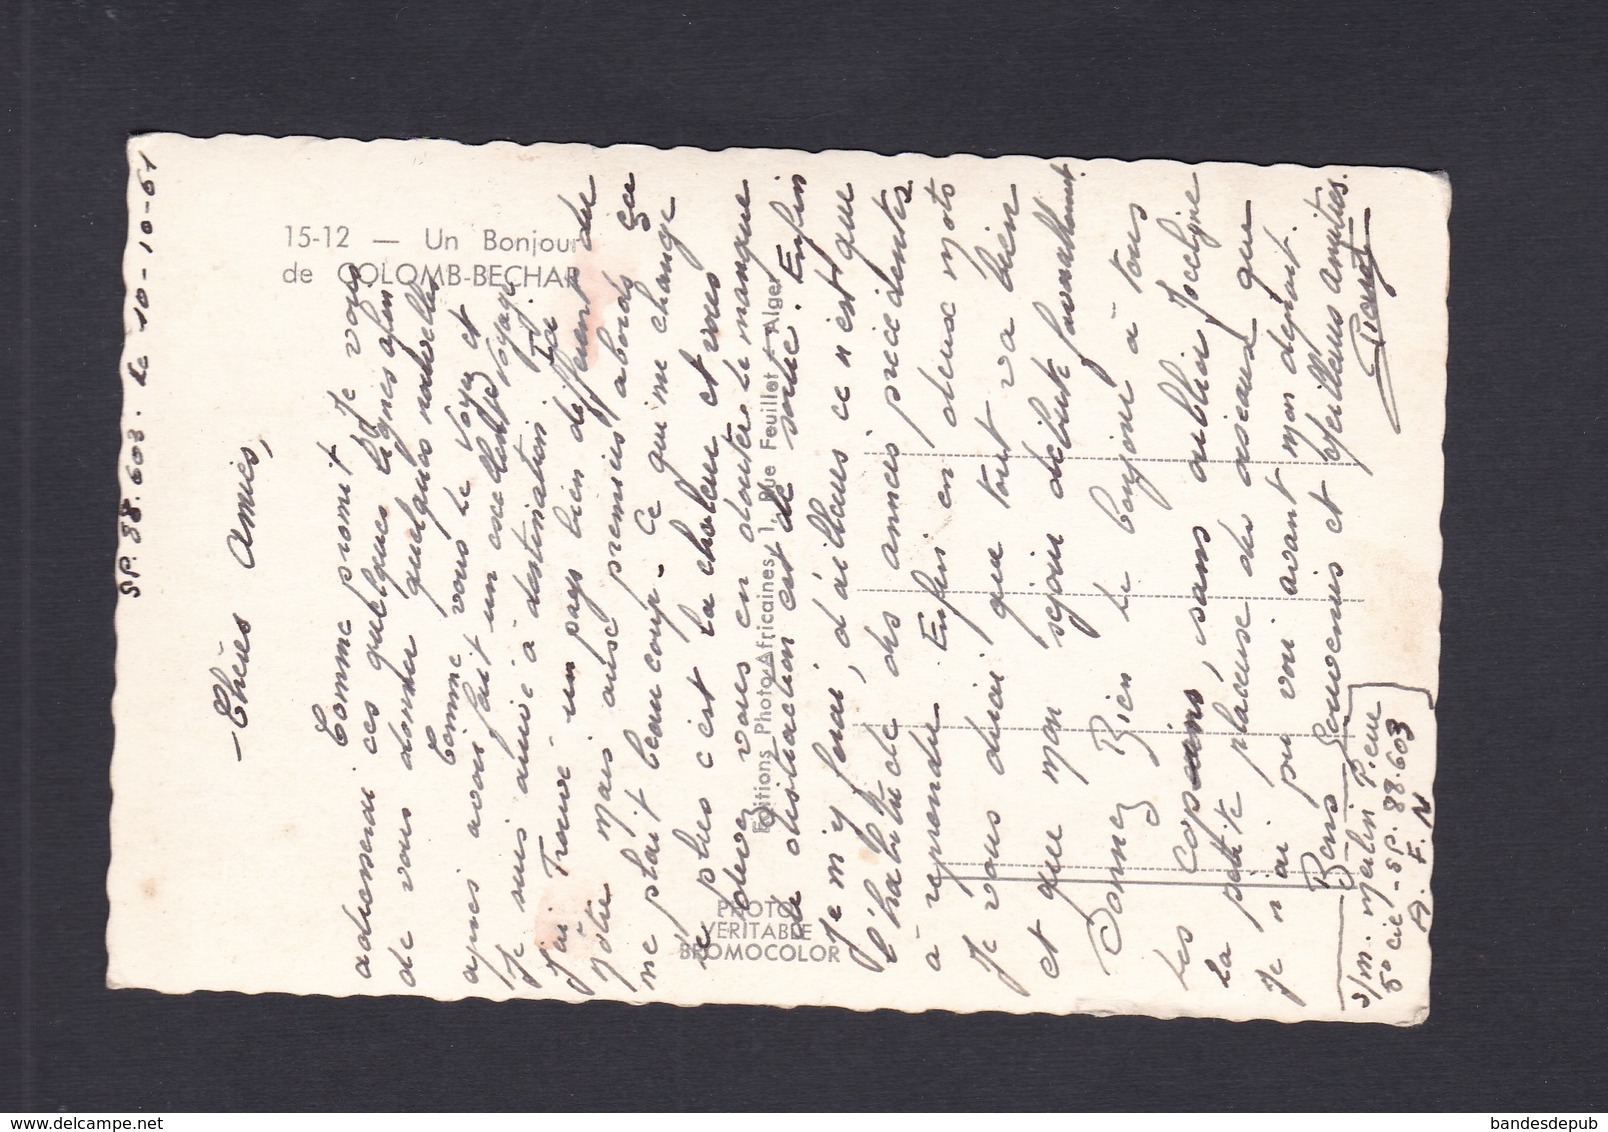 15-12 — Un Bonjour
de COLOMB-BECHAR
SP. 88.603. le 10-10-61
- Chères Amies,
Comme promit je vous
adresserai ces quelques lignes afin
de vous donner quelques nouvelles
Comme vous le voyez
après avoir fait un excellent voyage
Je suis arrivé à destination
J'ai trouvé un pays bien différent du
Notre mais aux premiers abords ça
me plait beaucoup. Ce qui me change
le plus c'est la chaleur et vous
devez vous en douter le manque
de distraction est de même. Enfin
Je m'y ferai, d'ailleurs ce n'est que
l'habitude des années précédentes
à reprendre. Enfin en deux mots
Je vous dirai que tout va bien
et que mon séjour débute favorablement.
Donnez Bien le bonjour à tous
les copains, sans oublier Jocelyne
la petite placeuse des oiseaux que
Je n'ai pu voir avant mon départ.
Bons Souvenirs et Meilleures Amitiés.
s/m. Merlin Pierre
5° Cie - SP. 88.603
A. F. N
Editions Photo-Africaines 1, Rue Feuillet - Alger
PHOTO
VERITABLE
BROMOCOLOR
bandesdepub